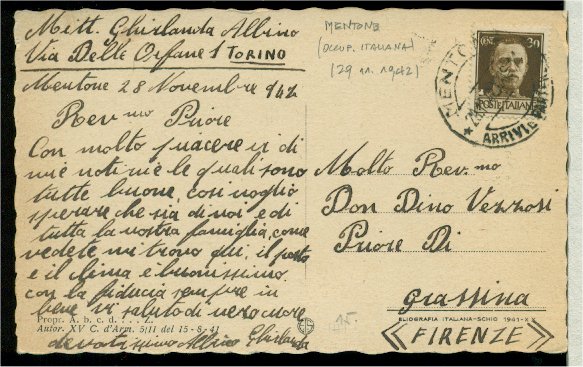 Mitt. Ghirlanda Albino
Via Delle Orfane 1 TORINO
Mentone 28 Novembre 942
Rev.mo Priore
Con molto piacere vi di
mie notizie le quali sono
tutte buone, così voglio
sperare che sia di voi e di
tutta la vostra famiglia, come
vedete mi trovo qui, il posto
e il clima è buonissimo
con la fiducia sempre in
bene vi saluto di vero cuore
devotissimo Albino Ghirlanda
Propr. A. b. c. d.
Autor. XV C. d'Arm. 5/11 del 15-8-41
MENTONE
(OCCUP. ITALIANA)
(29 11. 1942)
CENT. 30
POSTE ITALIANE
MENTO
ARRIVI E PARTENZE
Molto Rev.mo
Don Dino Vezzosi
Priore Di
Grassina
ELIOGRAFIA ITALIANA-SCHIO 1941-XX
FIRENZE